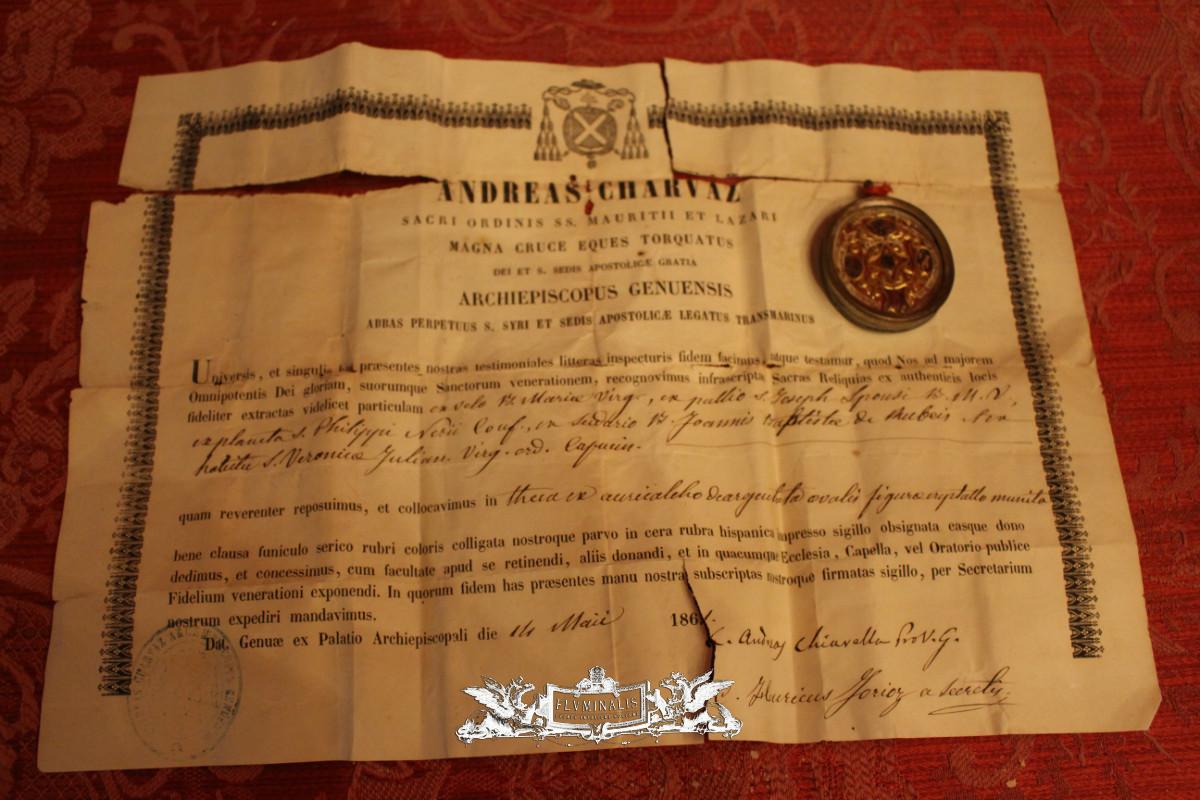 ANDREAS CHARVAZ
SACRI ORDINIS SS. MAURITII ET LAZARI
MAGNA CRUCE EQUES TORQUATUS
DEI ET S. SEDIS APOSTOLICÆ GRATIA
ARCHIEPISCOPUS GENUENSIS
ABBAS PERPETUUS S. SYRI ET SEDIS APOSTOLICÆ LEGATUS TRANSMARINUS
Universis, et singulis has præsentes nostras testimoniales litteras inspecturis fidem facimus, atque testamur, quod Nos ad majorem
Omnipotentis Dei gloriam, suorumque Sanctorum venerationem, recognovimus infrascripta Sacras Reliquias ex authenticis locis
fideliter extractas videlicet particulam ex velo B. Mariæ Virg., ex pallio S. Joseph Sponsi B. M. V.,
ex planeta S. Philippi Nerii Conf., ex sudario B. Joannis Baptistæ de Rubeis
S. Veronicæ Julian. Virg. ord. Capucin.
quam reverenter reposuimus, et collocavimus in theca ex auricalcho deargentata ovalis figuræ crystallo munita
bene clausa funiculo serico rubri coloris colligata nostroque parvo in cera rubra hispanica impresso sigillo obsignata easque dono
dedimus, et concessimus, cum facultate apud se retinendi, aliis donandi, et in quacumque Ecclesia, Capella, vel Oratorio publice
Fidelium venerationi exponendi. In quorum fidem has præsentes manu nostra subscriptas nostroque firmatas sigillo, per Secretarium
nostrum expediri mandavimus.
Dat. Genuæ ex Palatio Archiepiscopali die 14 Maii 186
Andreas Chiavella Pro V. G.
a Secretis
FLVMINALIS